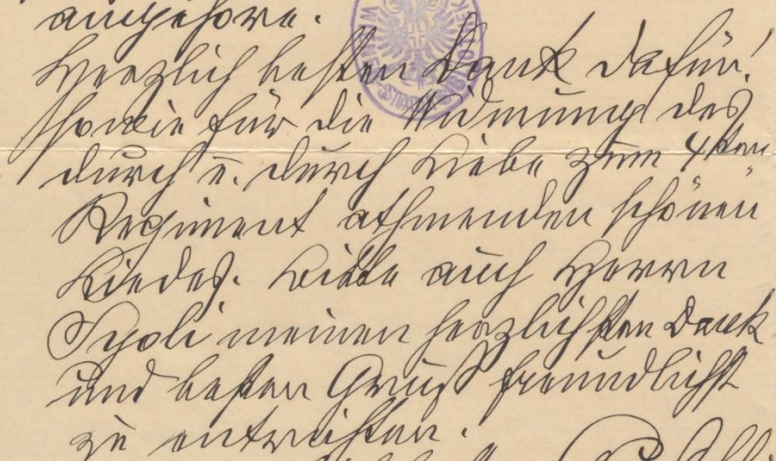 angehöre.
Herzlich besten Dank dafür!
sowie für die Widmung des
durch u. durch Liebe zum 4ten
Regiment athmenden schönen
Liedes. Bitte auch Herrn
meinen herzlichsten Dank
und besten Gruß freundlichst
zu entrichten.